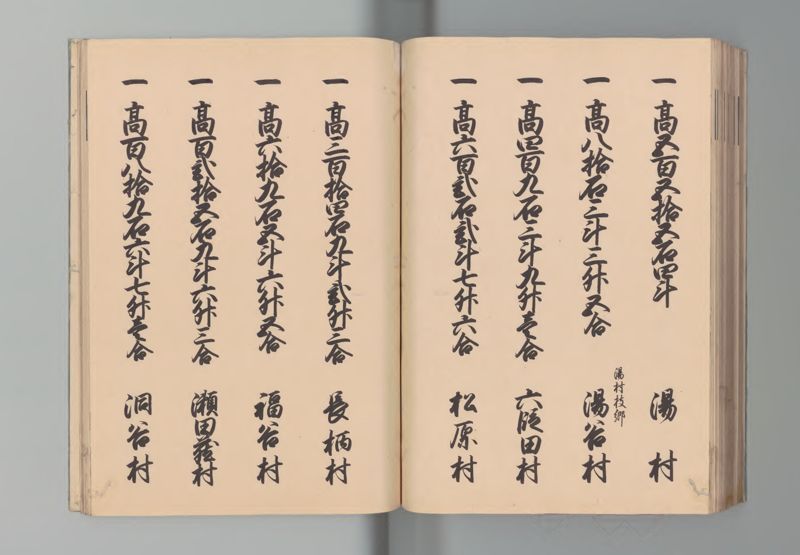 一 高五百五拾五石四斗 湯村
一 高八拾石三斗三升五合 湯村枝郷 湯谷村
一 高四百九石三斗九升壱合 六段田村
一 高六百弐石弐斗七升六合 松原村
一 高三百拾四石九斗弐升三合 長柄村
一 高六拾九石五斗六升五合 福谷村
一 高百弐拾五石九斗六升三合 瀬田蔵村
一 高百八拾九石六斗七升壱合 洞谷村